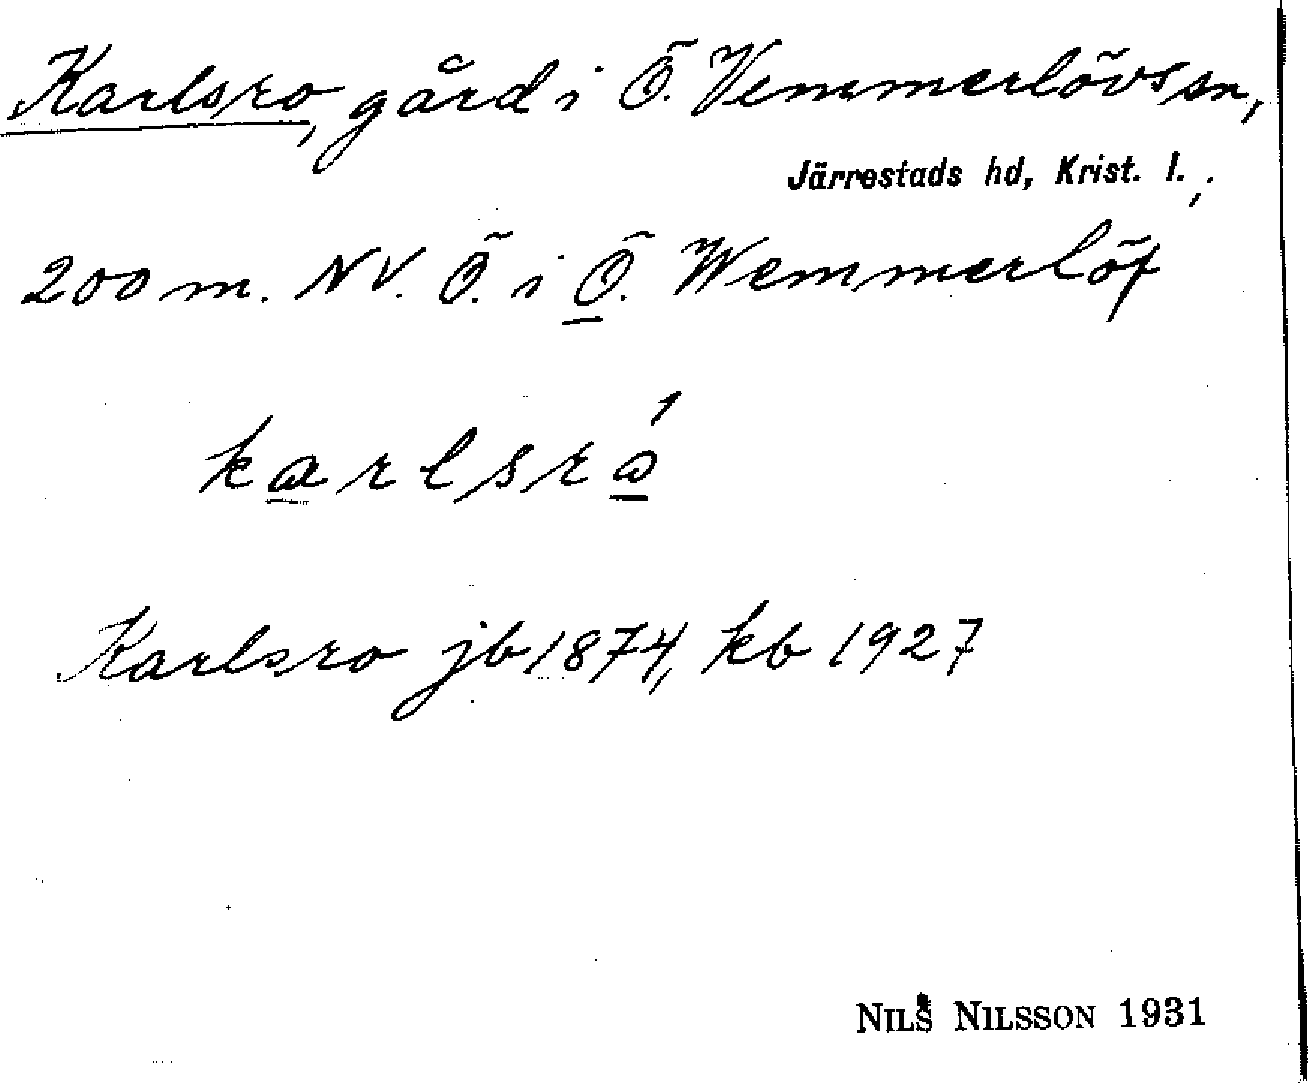 Karlsro, gård i Ö. Vemmerlövs sn,
Järrestads hd, Krist. l.,
200 m. NV. Ö. i Ö. Wemmerlöf
karlsró
Karlsro jb 1874, kb 1927
NILS NILSSON 1931